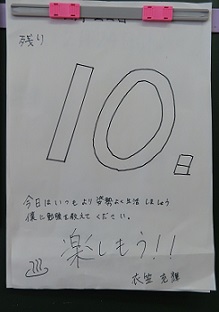 残り
10日
今日はいつもより姿勢よく生活しましょう
僕に勉強を教えてください。
楽しもう!!
衣笠